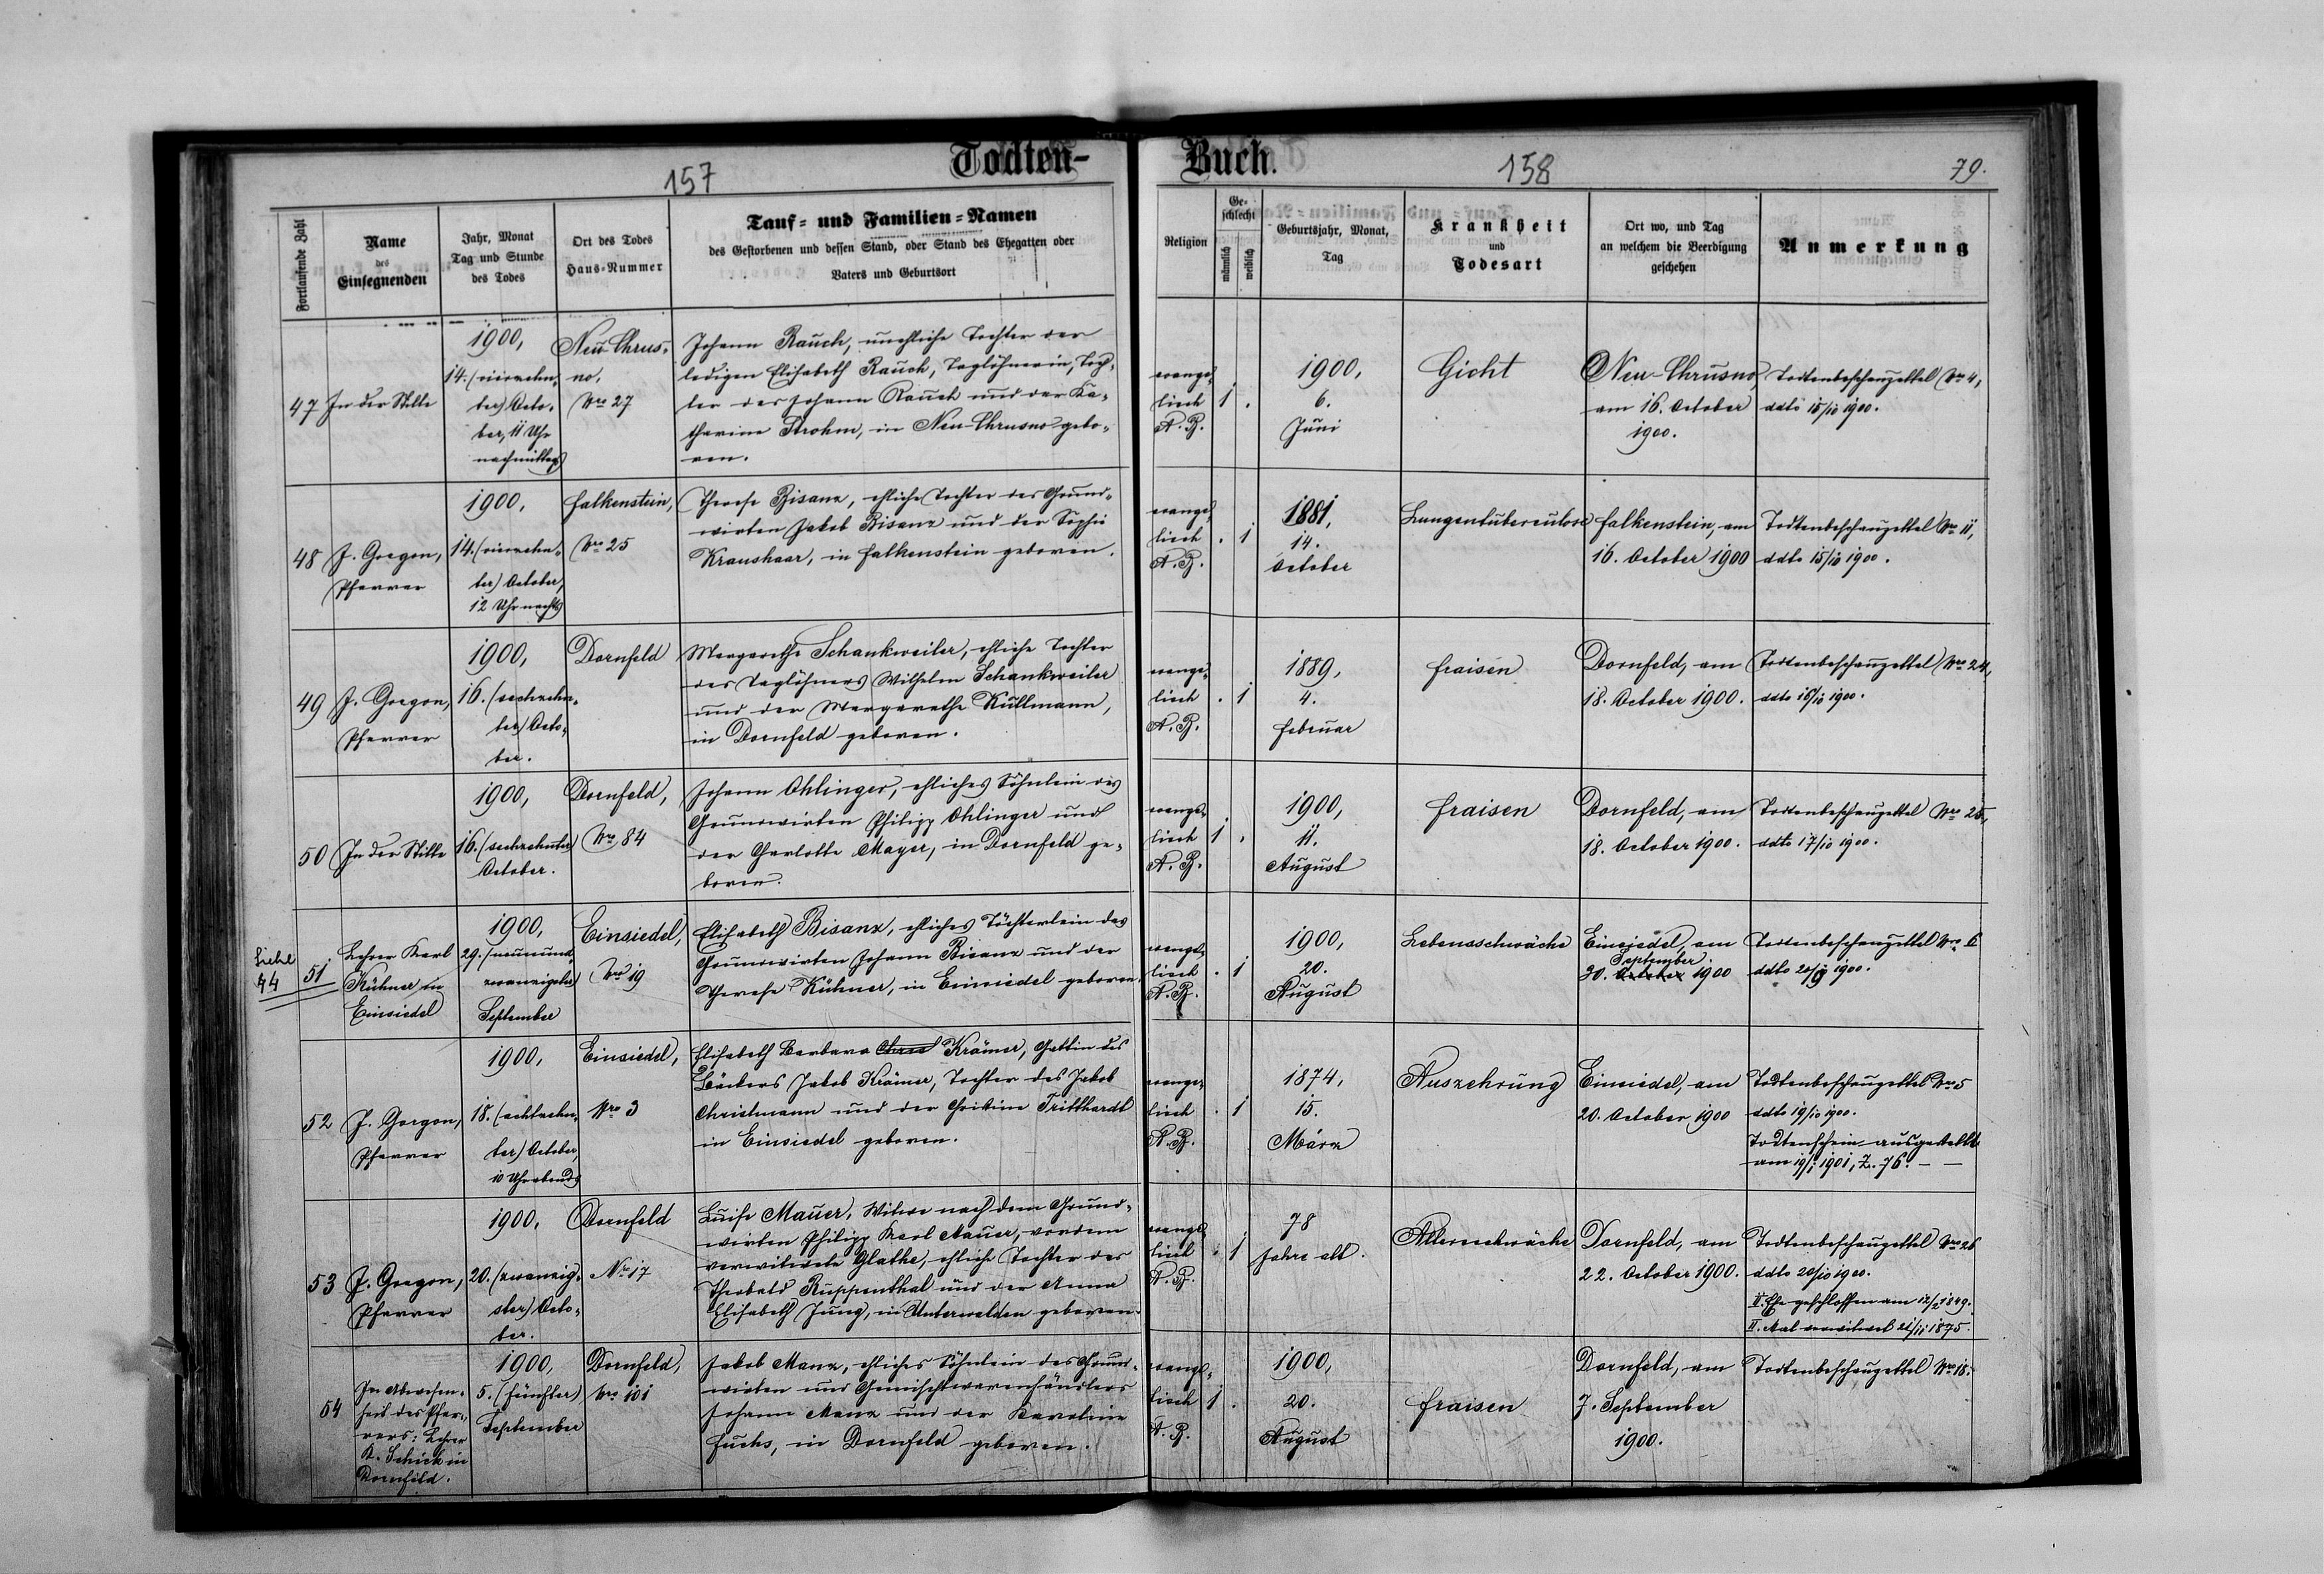 Todten-
Buch.
157
158
79.
Fortlaufende Zahl
Name
des
Einsegnenden
Jahr, Monat
Tag und Stunde
des Todes
Ort des Todes
Haus-Nummer
Tauf- und Familien-Namen
des Gestorbenen und dessen Stand, oder Stand des Ehegatten oder
Vaters und Geburtsort
Religion
Ge-
schlecht
männlich
weiblich
Geburtsjahr, Monat,
Tag
Krankheit
und
Todesart
Ort wo, und Tag
an welchem die Beerdigung
geschehen
Anmerkung
47
In der Stille
1900,
14. (vierzehn-
ter) Octo-
ber, 11 Uhr
nachmittags
Neu-Chrus-
no,
Nro 27
Johann Rauch, unehliche Tochter der
ledigen Elisabeth Rauch, Taglöhnerin, Toch-
ter des Johann Rauch und der Ka-
tharine Strohm, in Neu-Chrusno gebo-
ren.
evange-
lisch
A. B.
1 .
1900,
6.
Juni
Gicht
Neu-Chrusno
am 16. October
1900.
Todtenbeschauzettel Nro 4,
ddto 15/10 1900.
48
J. Gorgon,
Pfarrer
1900,
14. (vierzehn-
ter) October,
12 Uhr nachts
Falkenstein,
Nro 25
Therese Bisanz, ehliche Tochter des Grund-
wirten Jakob Bisanz und der Sophie
Kraushaar, in Falkenstein geboren.
evange-
lisch
A. B.
. 1
1881,
14.
October
Lungentuberculose
Falkenstein, am
16. October 1900
Todtenbeschauzettel Nro 11,
ddto 15/10 1900.
49
J. Gorgon,
Pfarrer
1900,
16. (sechzehn-
ter) Octo-
ber.
Dornfeld
Margarethe Schankweiler, ehliche Tochter
des Taglöhners Wilhelm Schankweiler
und der Margarethe Kullmann,
in Dornfeld geboren.
evange-
lisch
A. B.
. 1
1889,
4.
Februar
Fraisen
Dornfeld, am
18. October 1900.
Todtenbeschauzettel Nro 24,
ddto 16/10 1900.
50
In der Stille
1900,
16. (sechzehnter)
October.
Dornfeld,
Nro 84
Johann Ohlinger, ehliches Söhnlein des
Grundwirten Philipp Ohlinger und
der Charlotte Mayer, in Dornfeld ge-
boren.
evange-
lisch
A. B.
1 .
1900,
11.
August
Fraisen
Dornfeld, am
18. October 1900.
Todtenbeschauzettel Nro 25,
ddto 17/10 1900.
Siehe
44
51
Lehrer Karl
Kühner in
Einsiedel
1900,
29. (neunund-
zwanzigster)
September
Einsiedel,
Nro 19
Elisabeth Bisanz, ehliches Töchterlein des
Grundwirten Johann Bisanz und der
Therese Kühner, in Einsiedel geboren.
evange-
lisch
A. B.
. 1
1900,
20.
August
Lebensschwäche
Einsiedel, am
September
30. October 1900
Todtenbeschauzettel Nro 6
ddto 29/9 1900.
52
J. Gorgon,
Pfarrer
1900,
18. (achtzehn-
ter) October,
10 Uhr abends
Einsiedel,
Nro 3
Elisabeth Barbara Krämer, Gattin des
Bäckers Jakob Krämer, Tochter des Jakob
Christmann und der Christine Tritthardt
in Einsiedel geboren.
evange-
lisch
A. B.
. 1
1874,
15.
März
Auszehrung
Einsiedel, am
20. October 1900
Todtenbeschauzettel Nro 5
ddto 19/10 1900.
Todtenschein ausgestellt
am 19/1 1901, Z. 76. — —
53
J. Gorgon,
Pfarrer
1900,
20. (zwanzig-
ster) Octo-
ber.
Dornfeld
Nro 17
Luise Mauer, Witwe nach dem Grund-
wirten Philipp Karl Mauer, vordem
verwitwete Glathe, ehliche Tochter des
Theobald Ruppenthal und der Anna
Elisabeth Jung, in Unterwalden geboren.
evange-
lisch
A. B.
. 1
78
Jahre alt.
Altersschwäche
Dornfeld, am
22. October 1900.
Todtenbeschauzettel Nro 26
ddto 20/10 1900.
II. Ehe geschlossen am 12/2 1849.
II. Mal verwitwet 21/11 1875.
54
In Abwesen-
heit des Pfar-
rers: Lehrer
K. Schick in
Dornfeld.
1900,
5. (fünfter)
September
Dornfeld,
Nro 101
Jakob Manz, ehliches Söhnlein des Grund-
wirten und Gemischtwarenhändlers
Johann Manz und der Karoline
Fuchs, in Dornfeld geboren.
evange-
lisch
A. B.
1 .
1900,
20.
August
Fraisen
Dornfeld, am
7. September
1900.
Todtenbeschauzettel Nro 18.